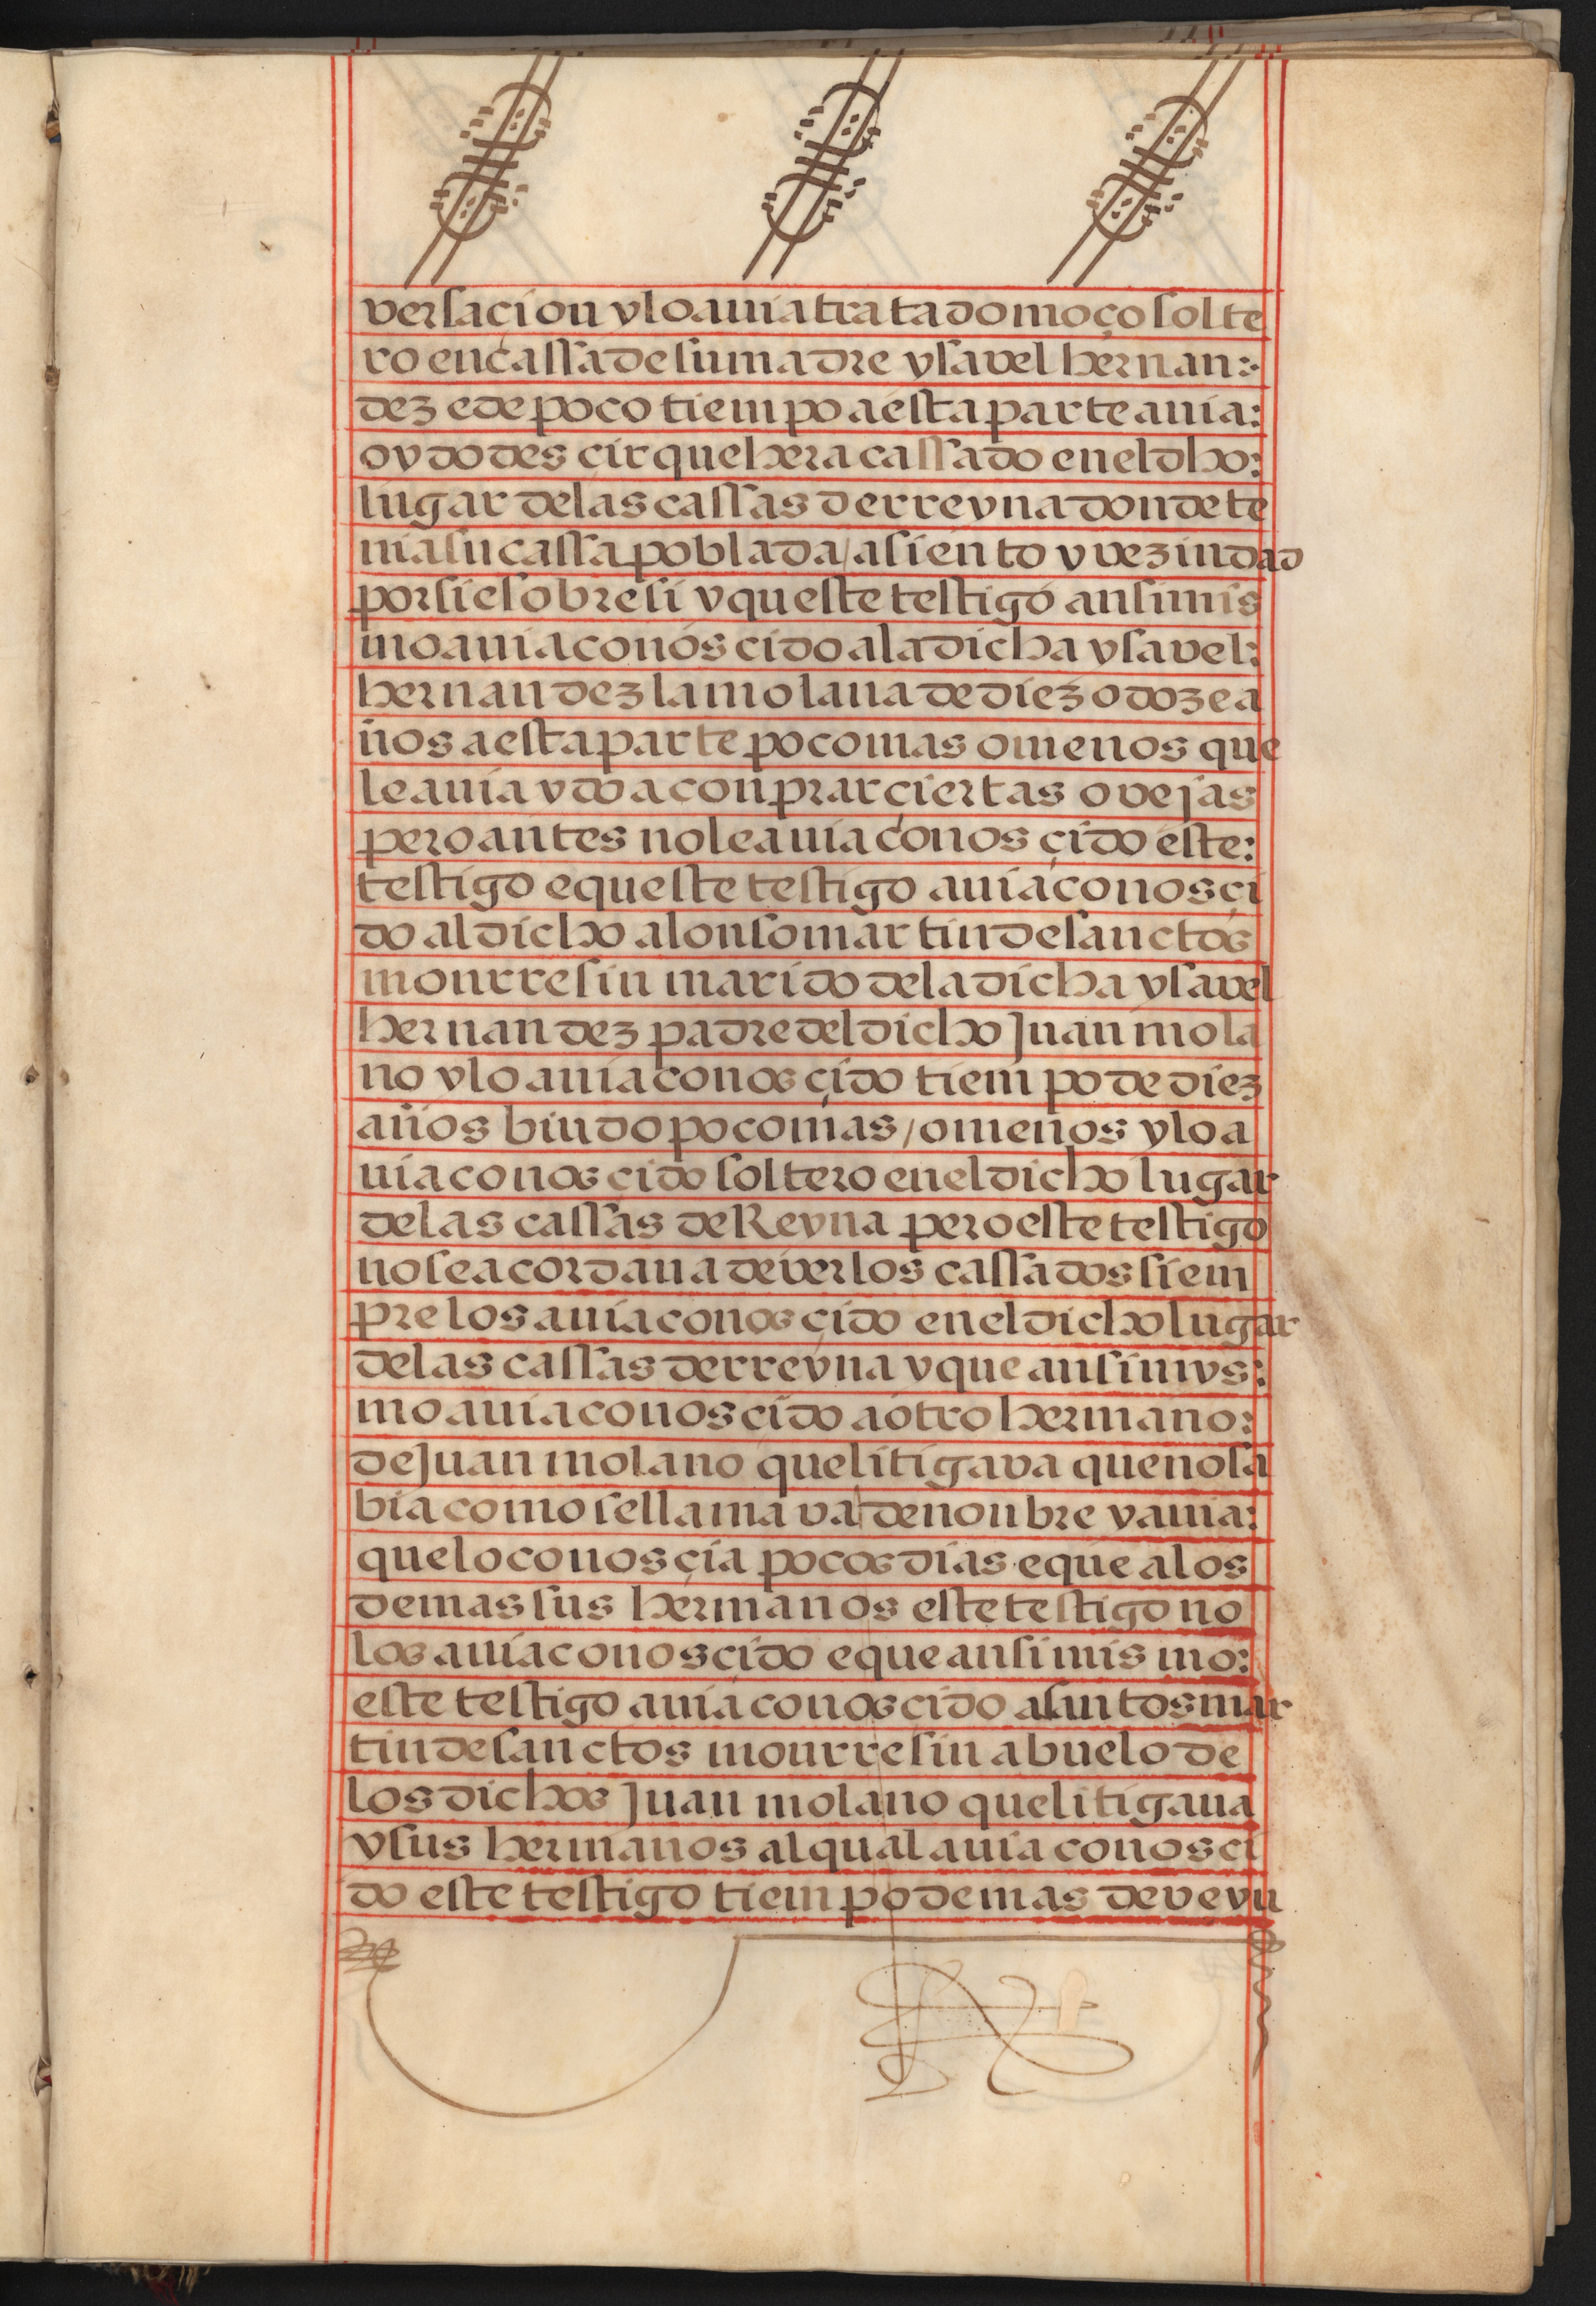 versaçion y lo auia tratado moço solte
ro en cassa de su madre ysavel hernan:
dez e de poco tiempo a esta parte auia:
oydo desçir que hera cassado en el dho:
lugar de las cassas derreyna donde te
nia su cassa poblada / asiento y vezindad
por si e sobre si y queste testigo ansimis
mo auia conosçido a la dicha ysavel:
hernandez la molana de diez o doze a
ños a esta parte poco mas o menos que
le auia ydo a conprar çiertas ovejas
pero antes no le auia conosçido este:
testigo e queste testigo auia conosçi
do al dicho alonso martin de sanctos
mourresin marido de la dicha ysavel
hernandez padre del dicho Juan mola
no y lo auia conosçido tiempo de diez
años biudo poco mas / o menos y lo a
uia conosçido soltero en el dicho lugar
de las cassas de Reyna pero este testigo
no se acordaua de verlos cassados siem
pre los auia conosçido en el dicho lugar
de las cassas derreyna y que ansimys:
mo auia conosçido a otro hermano:
de Juan molano que litigava que no sa
bia como se llamava de nonbre y auia:
que lo conosçia pocos dias e que a los
demas sus hermanos este testigo no
los auia conosçido e que ansimismo:
este testigo auia conosçido a santos mar
tin de sanctos mourresin abuelo de
los dichos Juan molano que litigaua
y sus hermanos al qual auia conosçi
do este testigo tiempo de mas de veyn